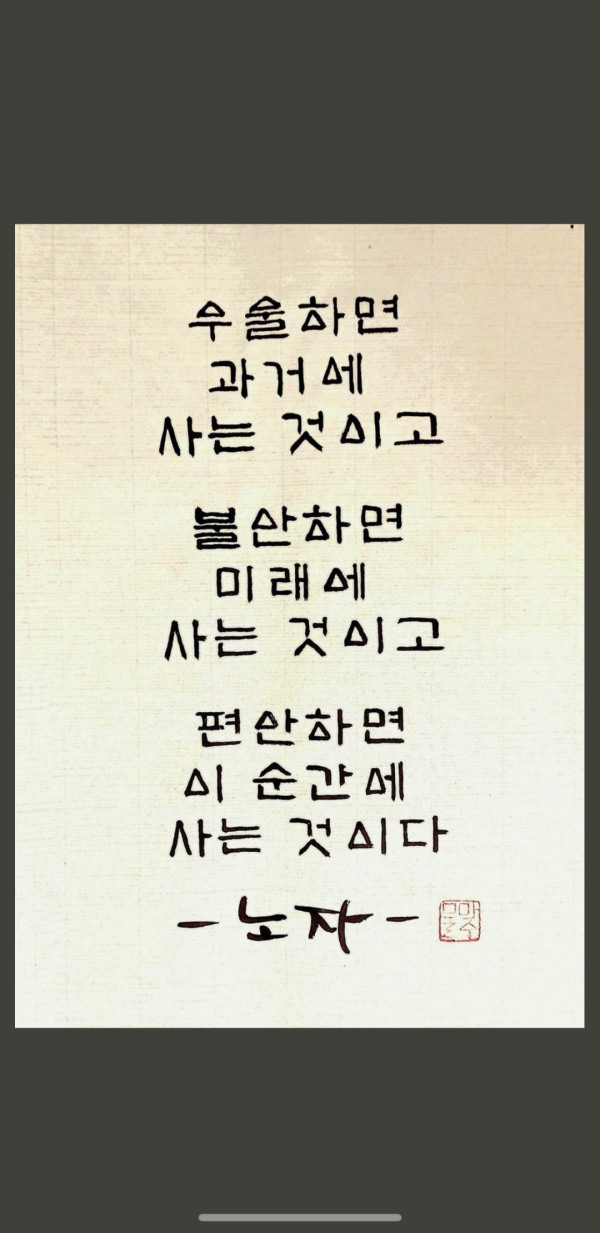 우울하면
과거에
사는 것이고
불안하면
미래에
사는 것이고
편안하면
이 순간에
사는 것이다
- 노자 -